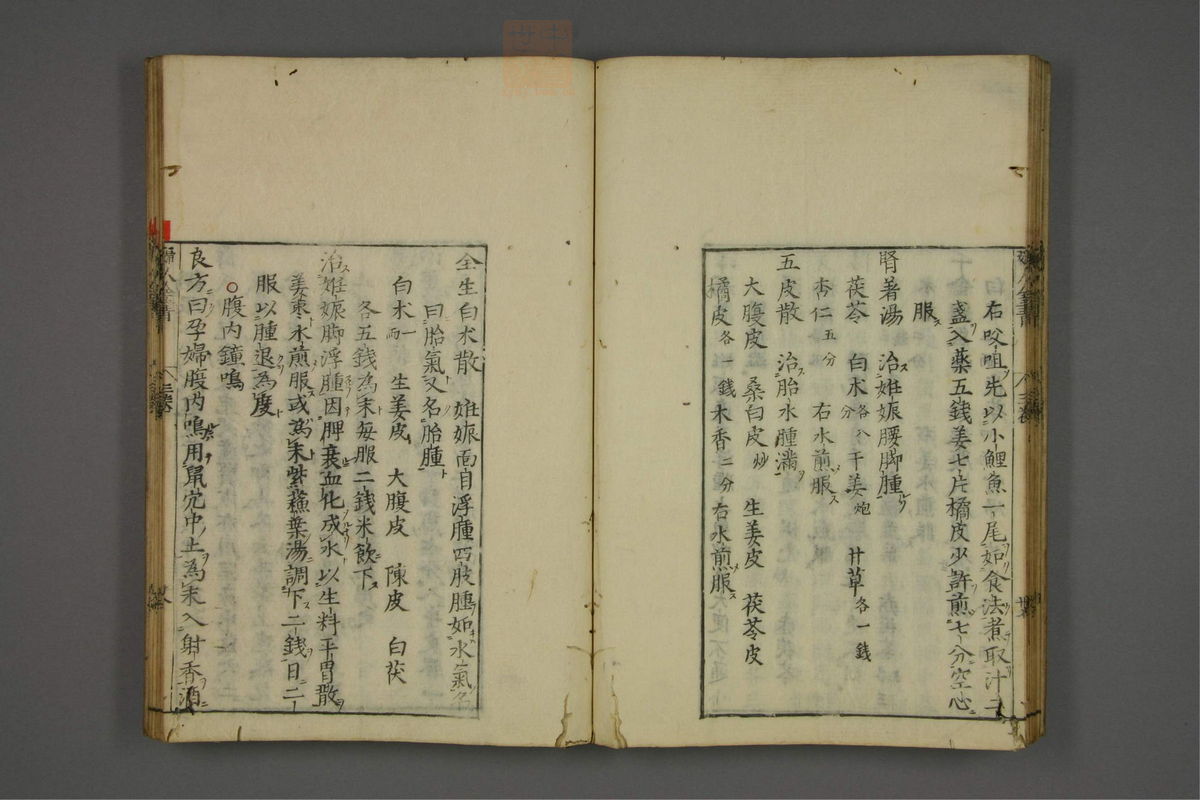 右㕮咀先以小鯉魚一尾如食法煮取汁二
盞入藥五錢姜七片橘皮少許煎七分空心
服
腎著湯 治姙娠腰脚腫
茯苓 白朮各八分 干姜炮 甘草各一錢
杏仁五分 右水煎服
五皮散 治胎水腫滿
大腹皮 桑白皮炒 生姜皮 茯苓皮
橘皮各一錢 木香二分 右水煎服
全生白朮散 姙娠面目浮腫四肢腫如水氣名
曰胎氣又名胎腫
白朮一兩 生姜皮 大腹皮 陳皮 白茯
各五錢為末每服二錢米飲下
治姙娠脚浮腫因脾衰血化成水以生料平胃散
姜棗水煎服或為末紫蘇葉湯調下二錢日二
服以腫退為度
○腹内鐘鳴
良方曰孕婦腹内鳴用鼠穴中土為末入射香酒